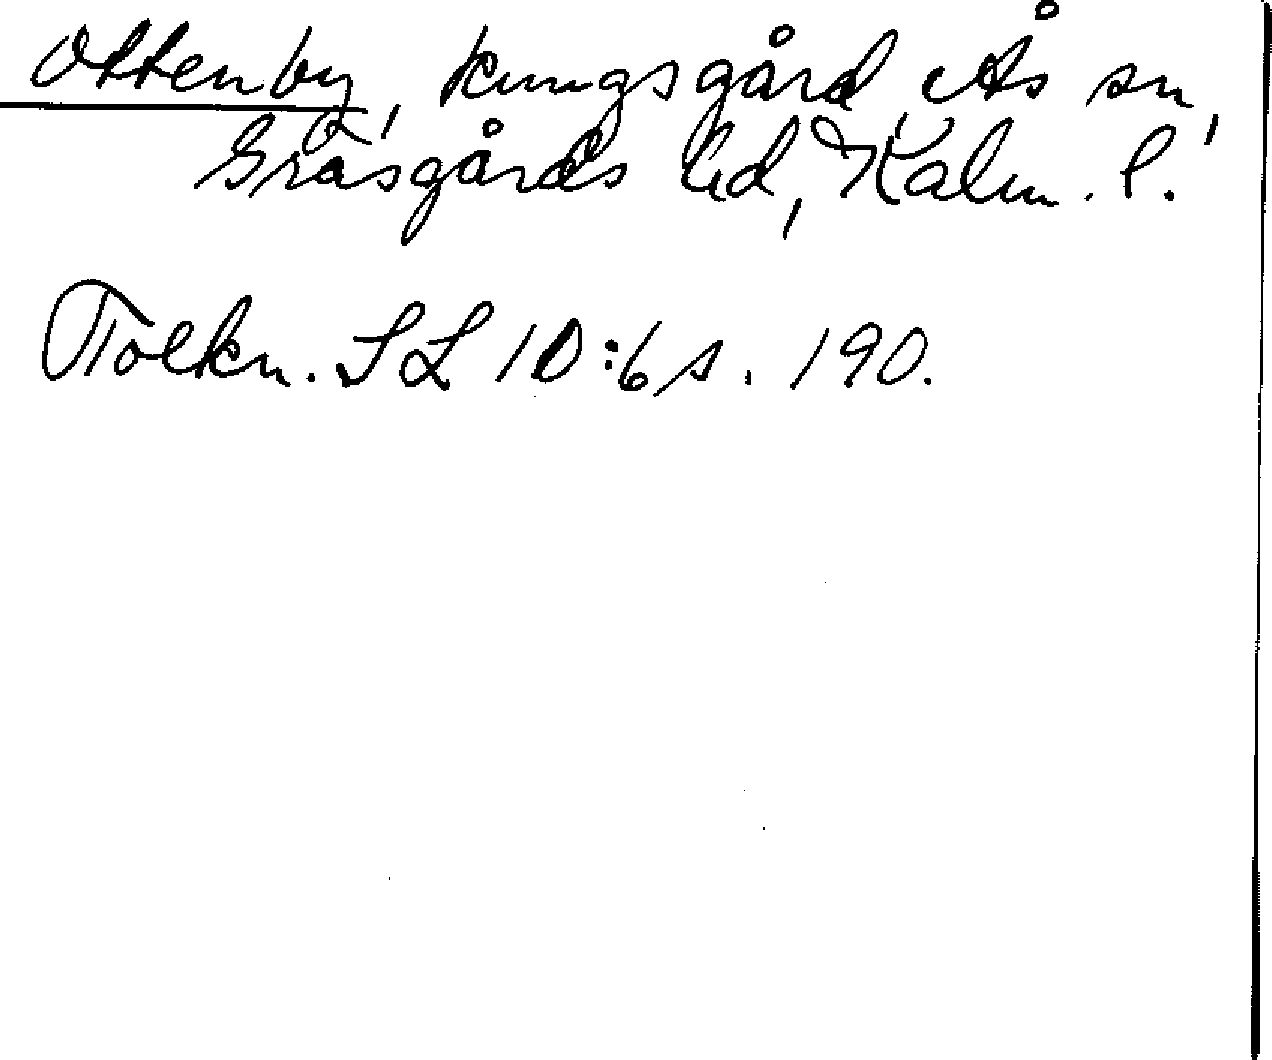 Ottenby, kungsgård, Ås sn,
Gräsgårds hd, Kalm. l.
Tolkn. SL 10:6 s. 190.